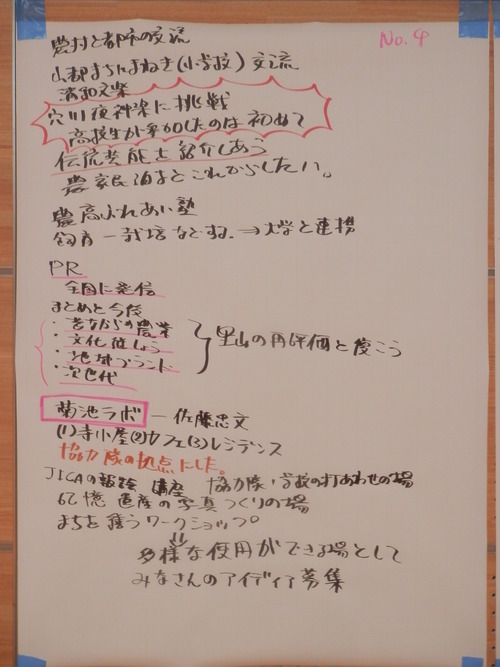 No. 4
農村と都市の交流
山都まちにまねき(小学校)交流
清和文楽
穴川夜神楽に挑戦
高校生が参加したのは初めて
伝統芸能を紹介しあう
農家民泊などこれからしたい。
農高ふれあい塾
飼育―栽培など⇒大学と連携
PR
全国に発信
まとめと今後
・昔ながらの農業
・文化伝しょう
・地域ブランド
・次世代
里山の再評価と復こう
菊池ラボ―佐藤忠文
(1)寺小屋(2)カフェ(3)レジデンス
協力隊の拠点にした。
JICAの報告 講座 協力隊・学校の打あわせの場
記憶遺産の写真つくりの場
まちを獲うワークショップ。
⇓
多様な使用ができる場として
みなさんのアイディア募集